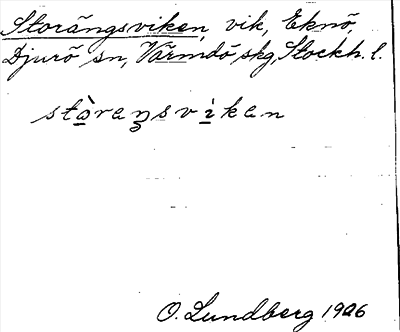 Storängsviken, vik, Eknö,
Djurö sn, Värmdö skg, Stockh. l.
stò̱raŋsvì̱ken
O. Lundberg 1926